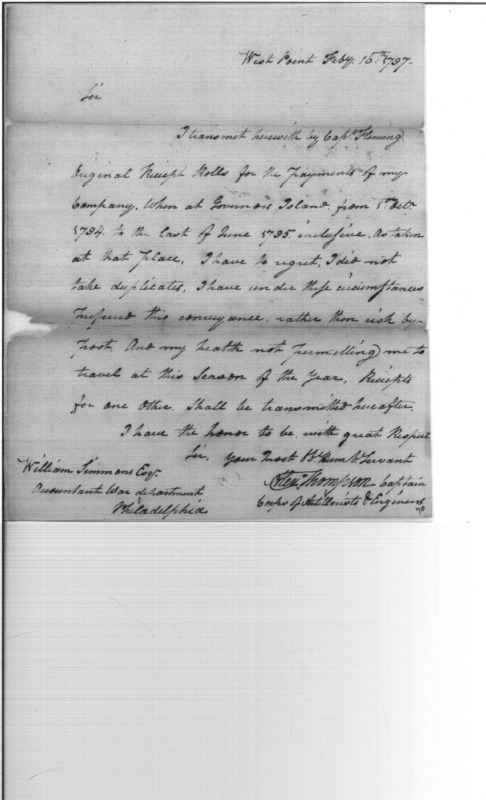 West Point Feby. 15th 1797.
Sir
I transmit herewith by Capt. Fleming
Original Receipt Rolls for the payments of my
Company, When at Governors Island, from 1st Octr.
1794. to the last of June 1795. inclusive, As taken
at that place, I have to regret, I did not
take duplicates, I have under these circumstances
Prefered this conveyance, rather then risk by
post, And my health not permitting me to
travel at this Season of the Year, Receipts
for one other, Shall be transmitted hereafter,
I have the honor to be with great Respect
Sir, your most Ob. Humb. Servant
Alex. Thompson Captain
Corps of Artillerists & Engineers
William Simmons Esqr.
Accountant War department,
Philadelphia